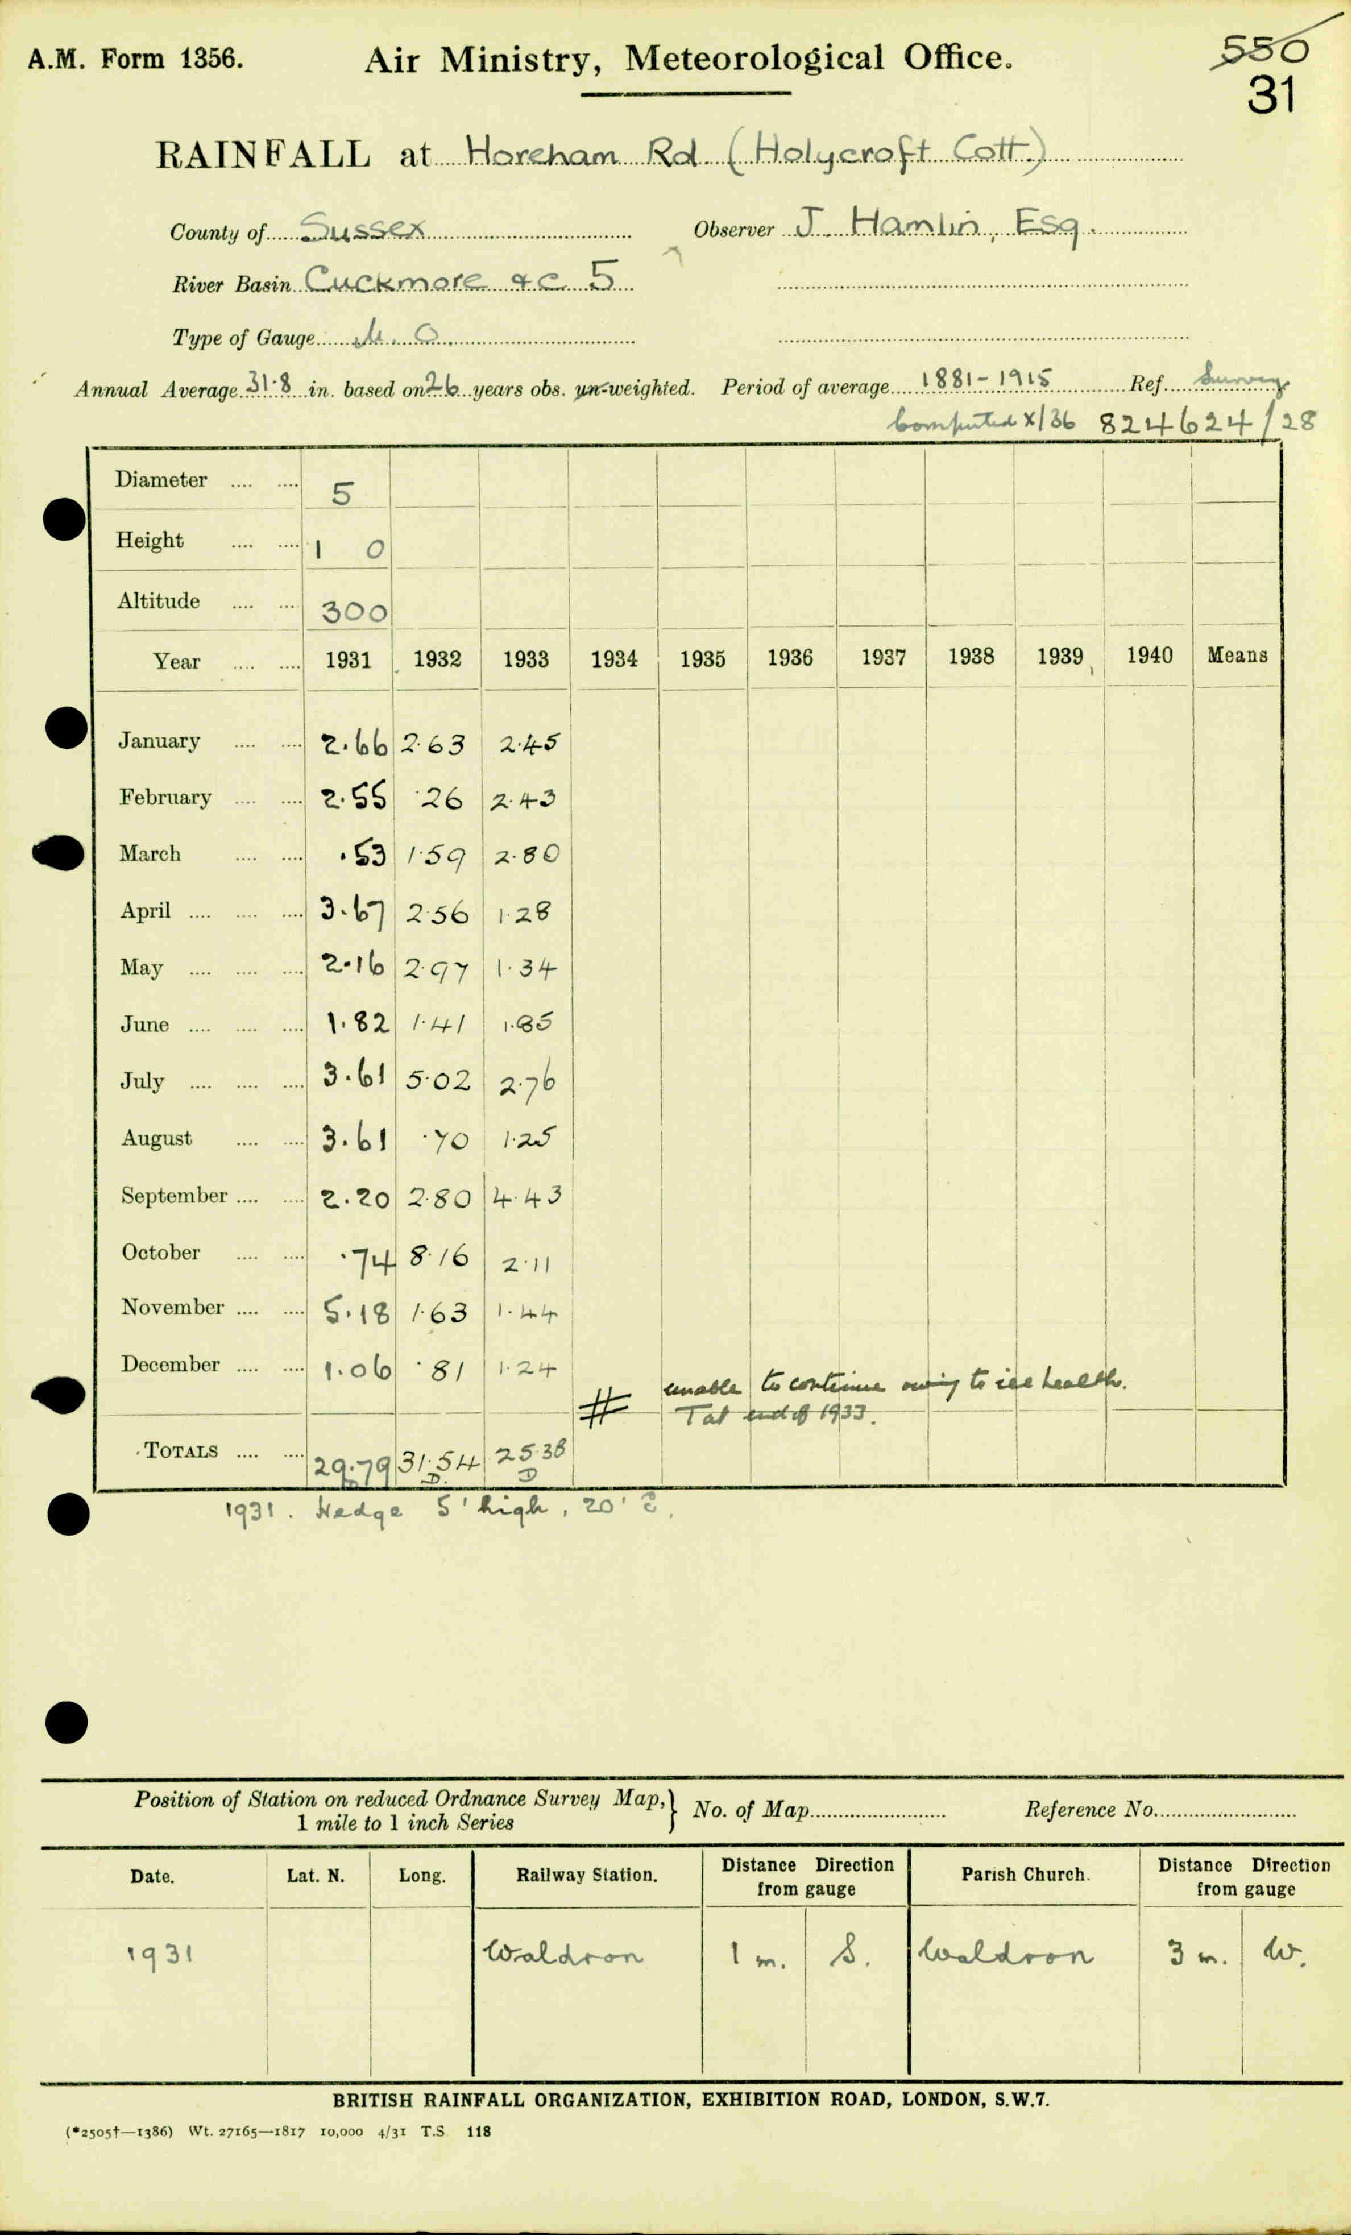 A.M. Form 1356. Air Ministry, Meteorological Office. 550
31
RAINFALL at Horeham Rd (Holycroft Cott.)
County of Sussex Observer J. Hamlin, Esq.
River Basin Cuckmore &c 5
Type of Gauge M. O.
Annual Average 31·8 in. based on 26 years obs. un-weighted. Period of average 1881-1915 Ref. Survey
Computed x/36 824624/28
Diameter .... .... 5
Height .... .... 1 0
Altitude .... .... 300
Year .... .... 1931 1932 1933 1934 1935 1936 1937 1938 1939 1940 Means
January .... .... 2.66 2.63 2.45
February .... .... 2.55 .26 2.43
March .... .... .53 1.59 2.80
April .... .... .... 3.67 2.56 1.28
May .... .... .... 2.16 2.97 1.34
June .... .... .... 1.82 1.41 1.85
July .... .... .... 3.61 5.02 2.76
August .... .... 3.61 .70 1.25
September .... .... 2.20 2.80 4.43
October .... .... .74 8.16 2.11
November .... .... 5.18 1.63 1.44
December .... .... 1.06 .81 1.24
# unable to continue owing to ill health.
T at end of 1933.
TOTALS .... .... 29.79 31.54 25.38
D D D
1931. Hedge 5' high, 20'
Position of Station on reduced Ordnance Survey Map,} No. of Map Reference No.
1 mile to 1 inch Series
Date. Lat. N. Long. Railway Station. Distance Direction from gauge Parish Church. Distance Direction from gauge
1931 Waldron 1 m. S. Waldron 3 m. W.
BRITISH RAINFALL ORGANIZATION, EXHIBITION ROAD, LONDON, S.W.7.
(*2505†—1386) Wt. 27165—1817 10,000 4/31 T.S. 118